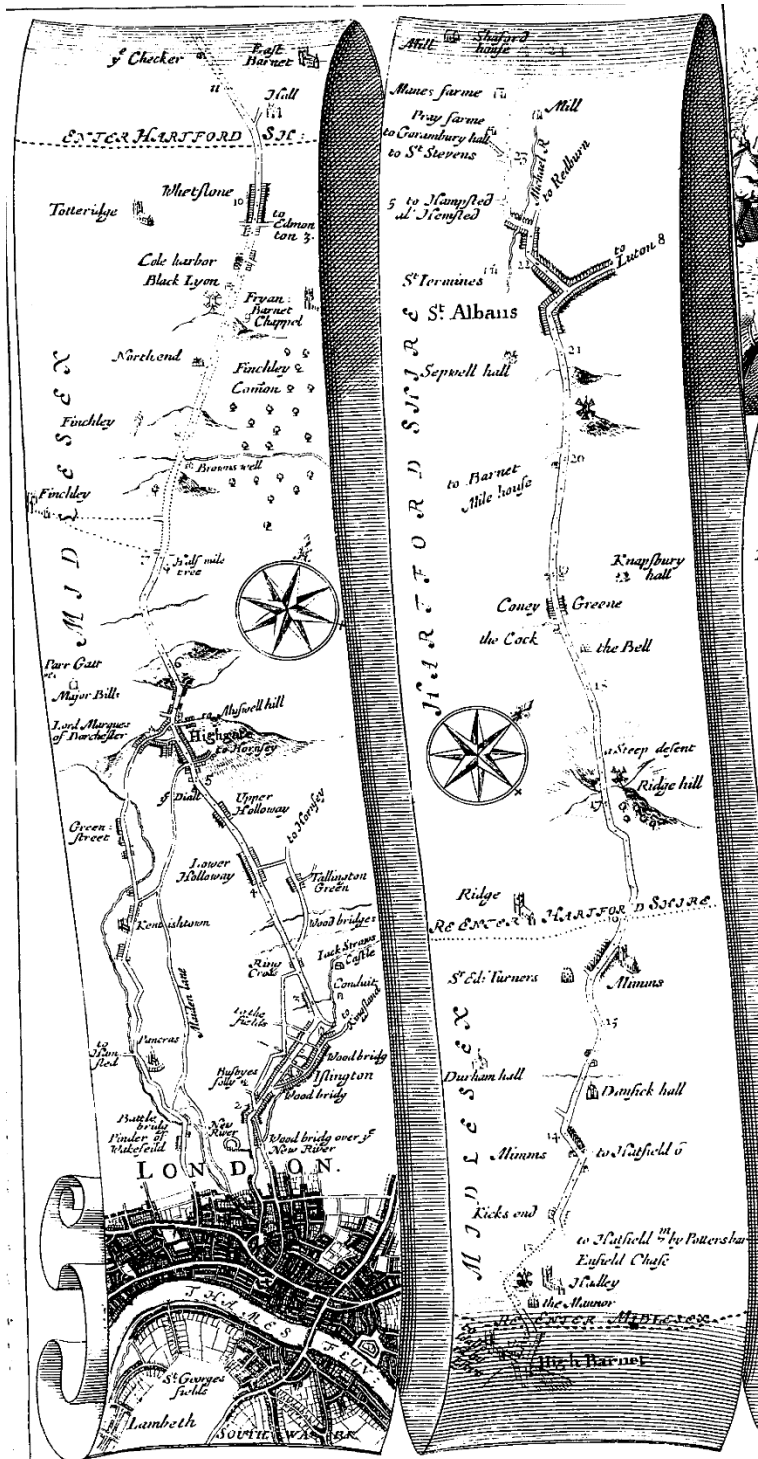 ye Checker
East
Barnet
11
Hall
ENTER HARTFORD SH:
Whetstone
10
Totteridge
to
Edmon
ton 3.
Cole harbor
Black Lyon
Fryan
Barnet
Chappel
9
Northend
Finchley
Com̄on
Finchley
Browns well
Finchley
MIDLESEX
7
Half mile
tree
6
Parr Gate
Major Bills
to Muswell hill
Lord Marques
of Dorchester
Highgate
to Hornsey
5
ye Diall
Upper
Holloway
to Hornsey
Green
street
Lower
Holloway
4
Tallington
Green
Kentishtown
Wood bridges
Ring
Cross
Iack Straws
Castle
Conduit
3
Maiden lane
to the
fields
to
Kingsland
to
Ham
sted
Pancras
Wood bridg
Busbyes
folly
Islington
Wood bridg
2
Battle
bridg
Pinder of
Wakefeild
New
River
Wood bridg over ye
New River
LONDON.
THAMES FLUV
St Georges
fields
Lambeth
SOUTHWARK
Mill
Shaford
house
24
Manes farme
Mill
Pray farme
to Gorambury hall
to St Stevens
23
Michael R
to Redburn
5 to Hampsted
al Hemsted
22
to
Luton 8
St Iermines
St Albans
21
Sepwell hall
20
to Barnet
Mile house
HARTFORD SHIRE
Knapsbury
hall
Coney Greene
the Cock
the Bell
18
a Steep desent
Ridge hill
17
Ridge
RE ENTER HARTFORD SHIRE
St Ed: Turners
Mimms
15
Durham hall
Dansick hall
14
Mimms
to Hatfield 6
MIDLESEX
Kicks end
13
to Hatfield 7 m by Potters bar
Enfield Chase
Hadley
the Mannor
RE ENTER MIDLESEX
High Barnet